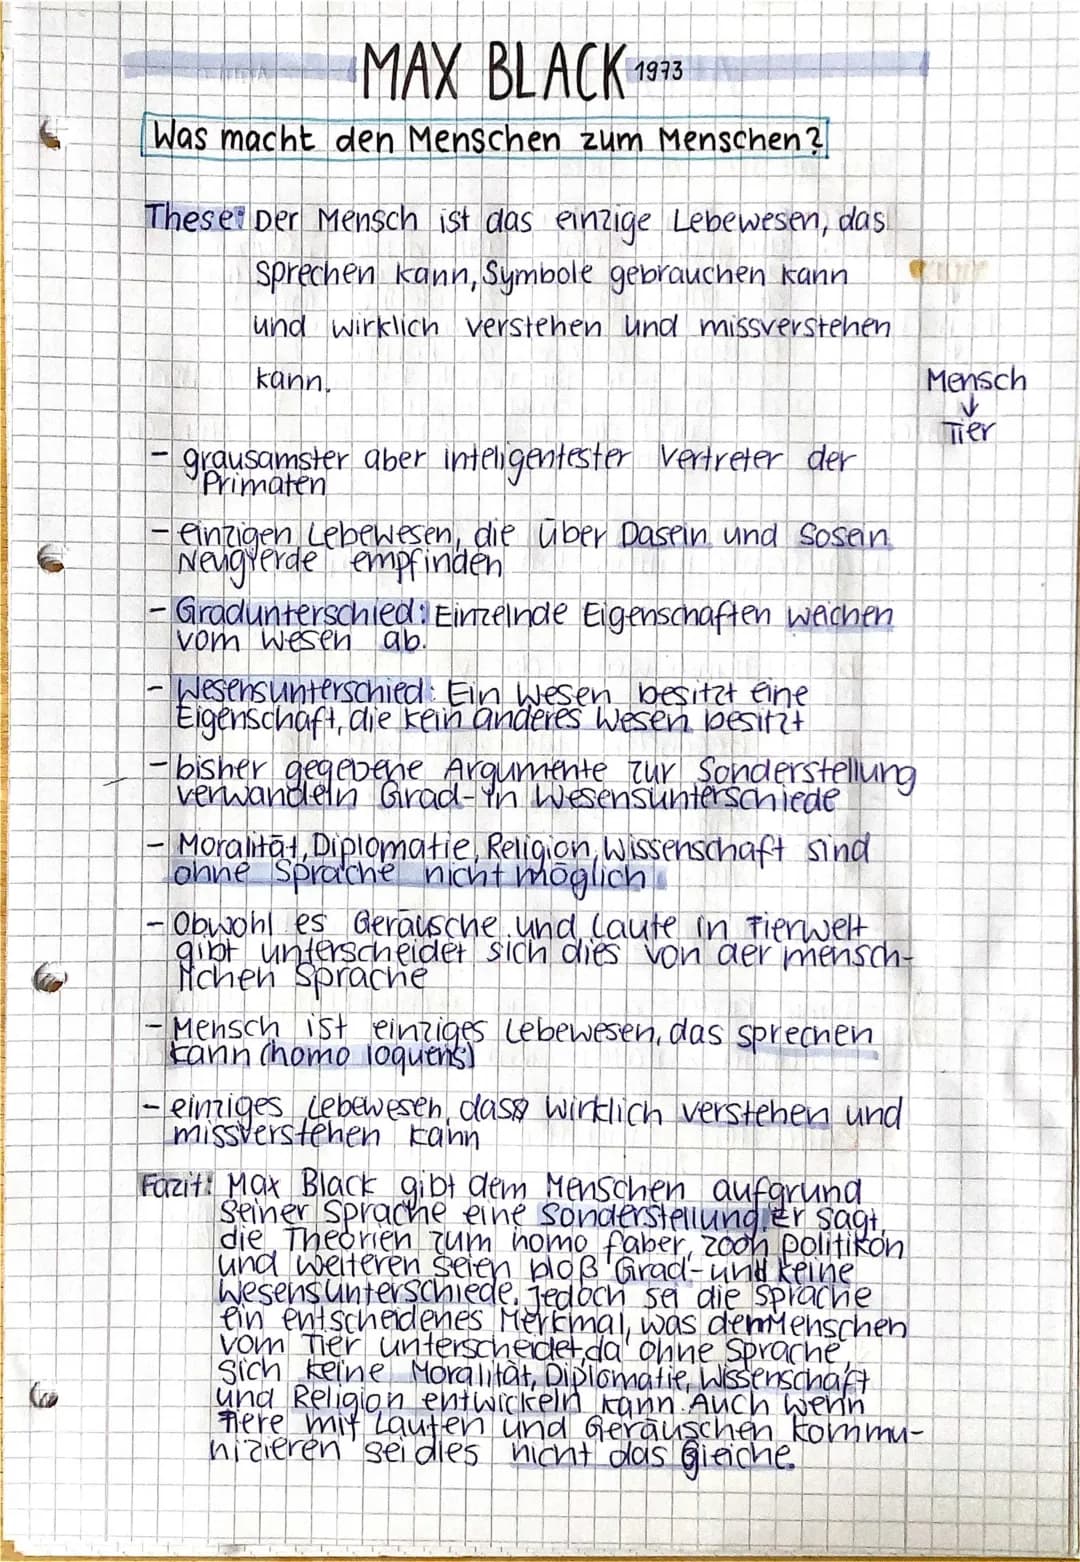 MAX BLACK 1973
Was macht den Menschen zum Menschen?
These: Der Mensch ist das einzige Lebewesen, das
sprechen kann, Symbole gebrauchen kann
und wirklich verstehen und missverstehen
kann.
Mensch
↓
Tier
- grausamster aber inteligentester Vertreter der
Primaten
- einzigen Lebewesen, die über Dasein und Sosein
Neugierde empfinden
- Gradunterschied: Einzelnde Eigenschaften weichen
vom Wesen ab.
- Wesensunterschied: Ein Wesen besitzt eine
Eigenschaft, die kein anderes Wesen besitzt
- bisher gegebene Argumente zur Sonderstellung
verwandeln Grad- in Wesensunterschiede
- Moralität, Diplomatie, Religion, Wissenschaft sind
ohne Sprache nicht möglich
- Obwohl es Geräusche und Laute in Tierwelt
gibt unterscheidet sich dies von der mensch-
lichen Sprache
- Mensch ist einziges Lebewesen, das sprechen
kann (homo loquens)
- einziges Lebewesen, dass wirklich verstehen und
missverstehen kann
Fazit: Max Black gibt dem Menschen aufgrund
seiner Sprache eine Sonderstellung. Er sagt,
die Theorien zum homo faber, zoon politikon
und weiteren seien bloß Grad- und keine
Wesensunterschiede. Jedoch sei die Sprache
ein entscheidenes Merkmal, was den Menschen
vom Tier unterscheidet, da ohne Sprache
sich keine Moralität, Diplomatie, Wissenschaft
und Religion entwickeln kann. Auch wenn
Tiere mit Lauten und Geräuschen kommu-
nizieren sei dies nicht das Gleiche.